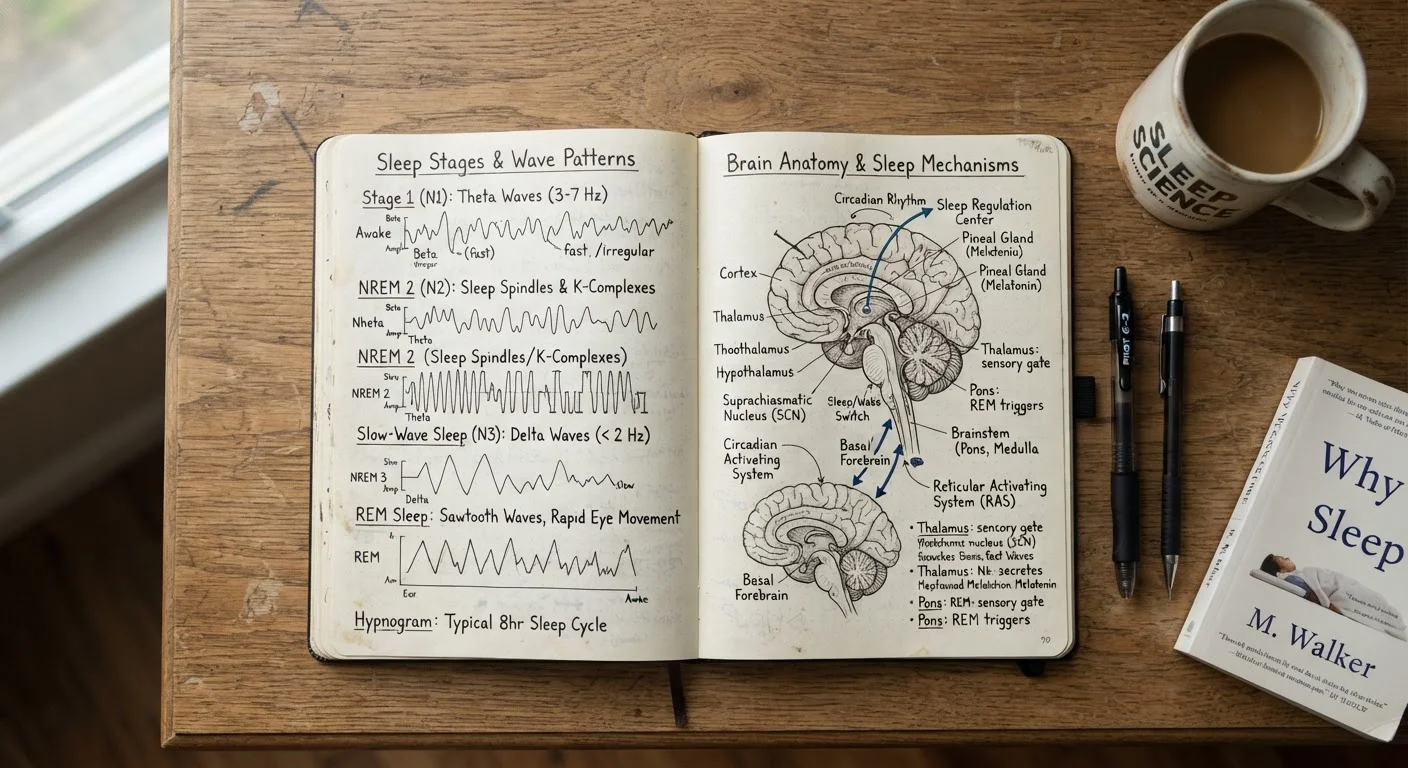 Sleep Stages & Wave Patterns
Stage 1 (N1): Theta Waves (3-7 Hz)
Bete
Awake
Amp
Beta
(fast)
fast, /irregular
NREM 2 (N2): Sleep Spindles & K-Complexes
Nheta
Theto
NREM 2 (Sleep Spindles/K-Complexes)
NREM 2
Theta
Slow-Wave Sleep (N3): Delta Waves (< 2 Hz)
NREM 3
Delta
REM Sleep: Sawtooth Waves, Rapid Eye Movement
REM
Awake
Hypnogram: Typical 8hr Sleep Cycle
Brain Anatomy & Sleep Mechanisms
Circadian Rhythm
Sleep Regulation
Center
Pineal Gland
Pineal Gland
(Melatonin)
Cortex
Thalamus
Thoothalamus
Hypothalamus
Thalamus:
sensory gate
Suprachiasmatic
Nucleus (SCN)
Sleep/Wake
Switch
Pons:
REM triggers
Circadian
Activating
System
Basal
Forebrein
Brainstem
(Pons, Medulla
Reticular Activating
System (RAS)
Basal
Forebrein
• Thalamus: sensory gate
nucleus
• Thalamus: secretes
Melatonin
• Pons: REM- sensory gate
• Pons: REM triggers
SLEEP
SCIENCE
PILOT G-2
Why
Sleep
M. Walker